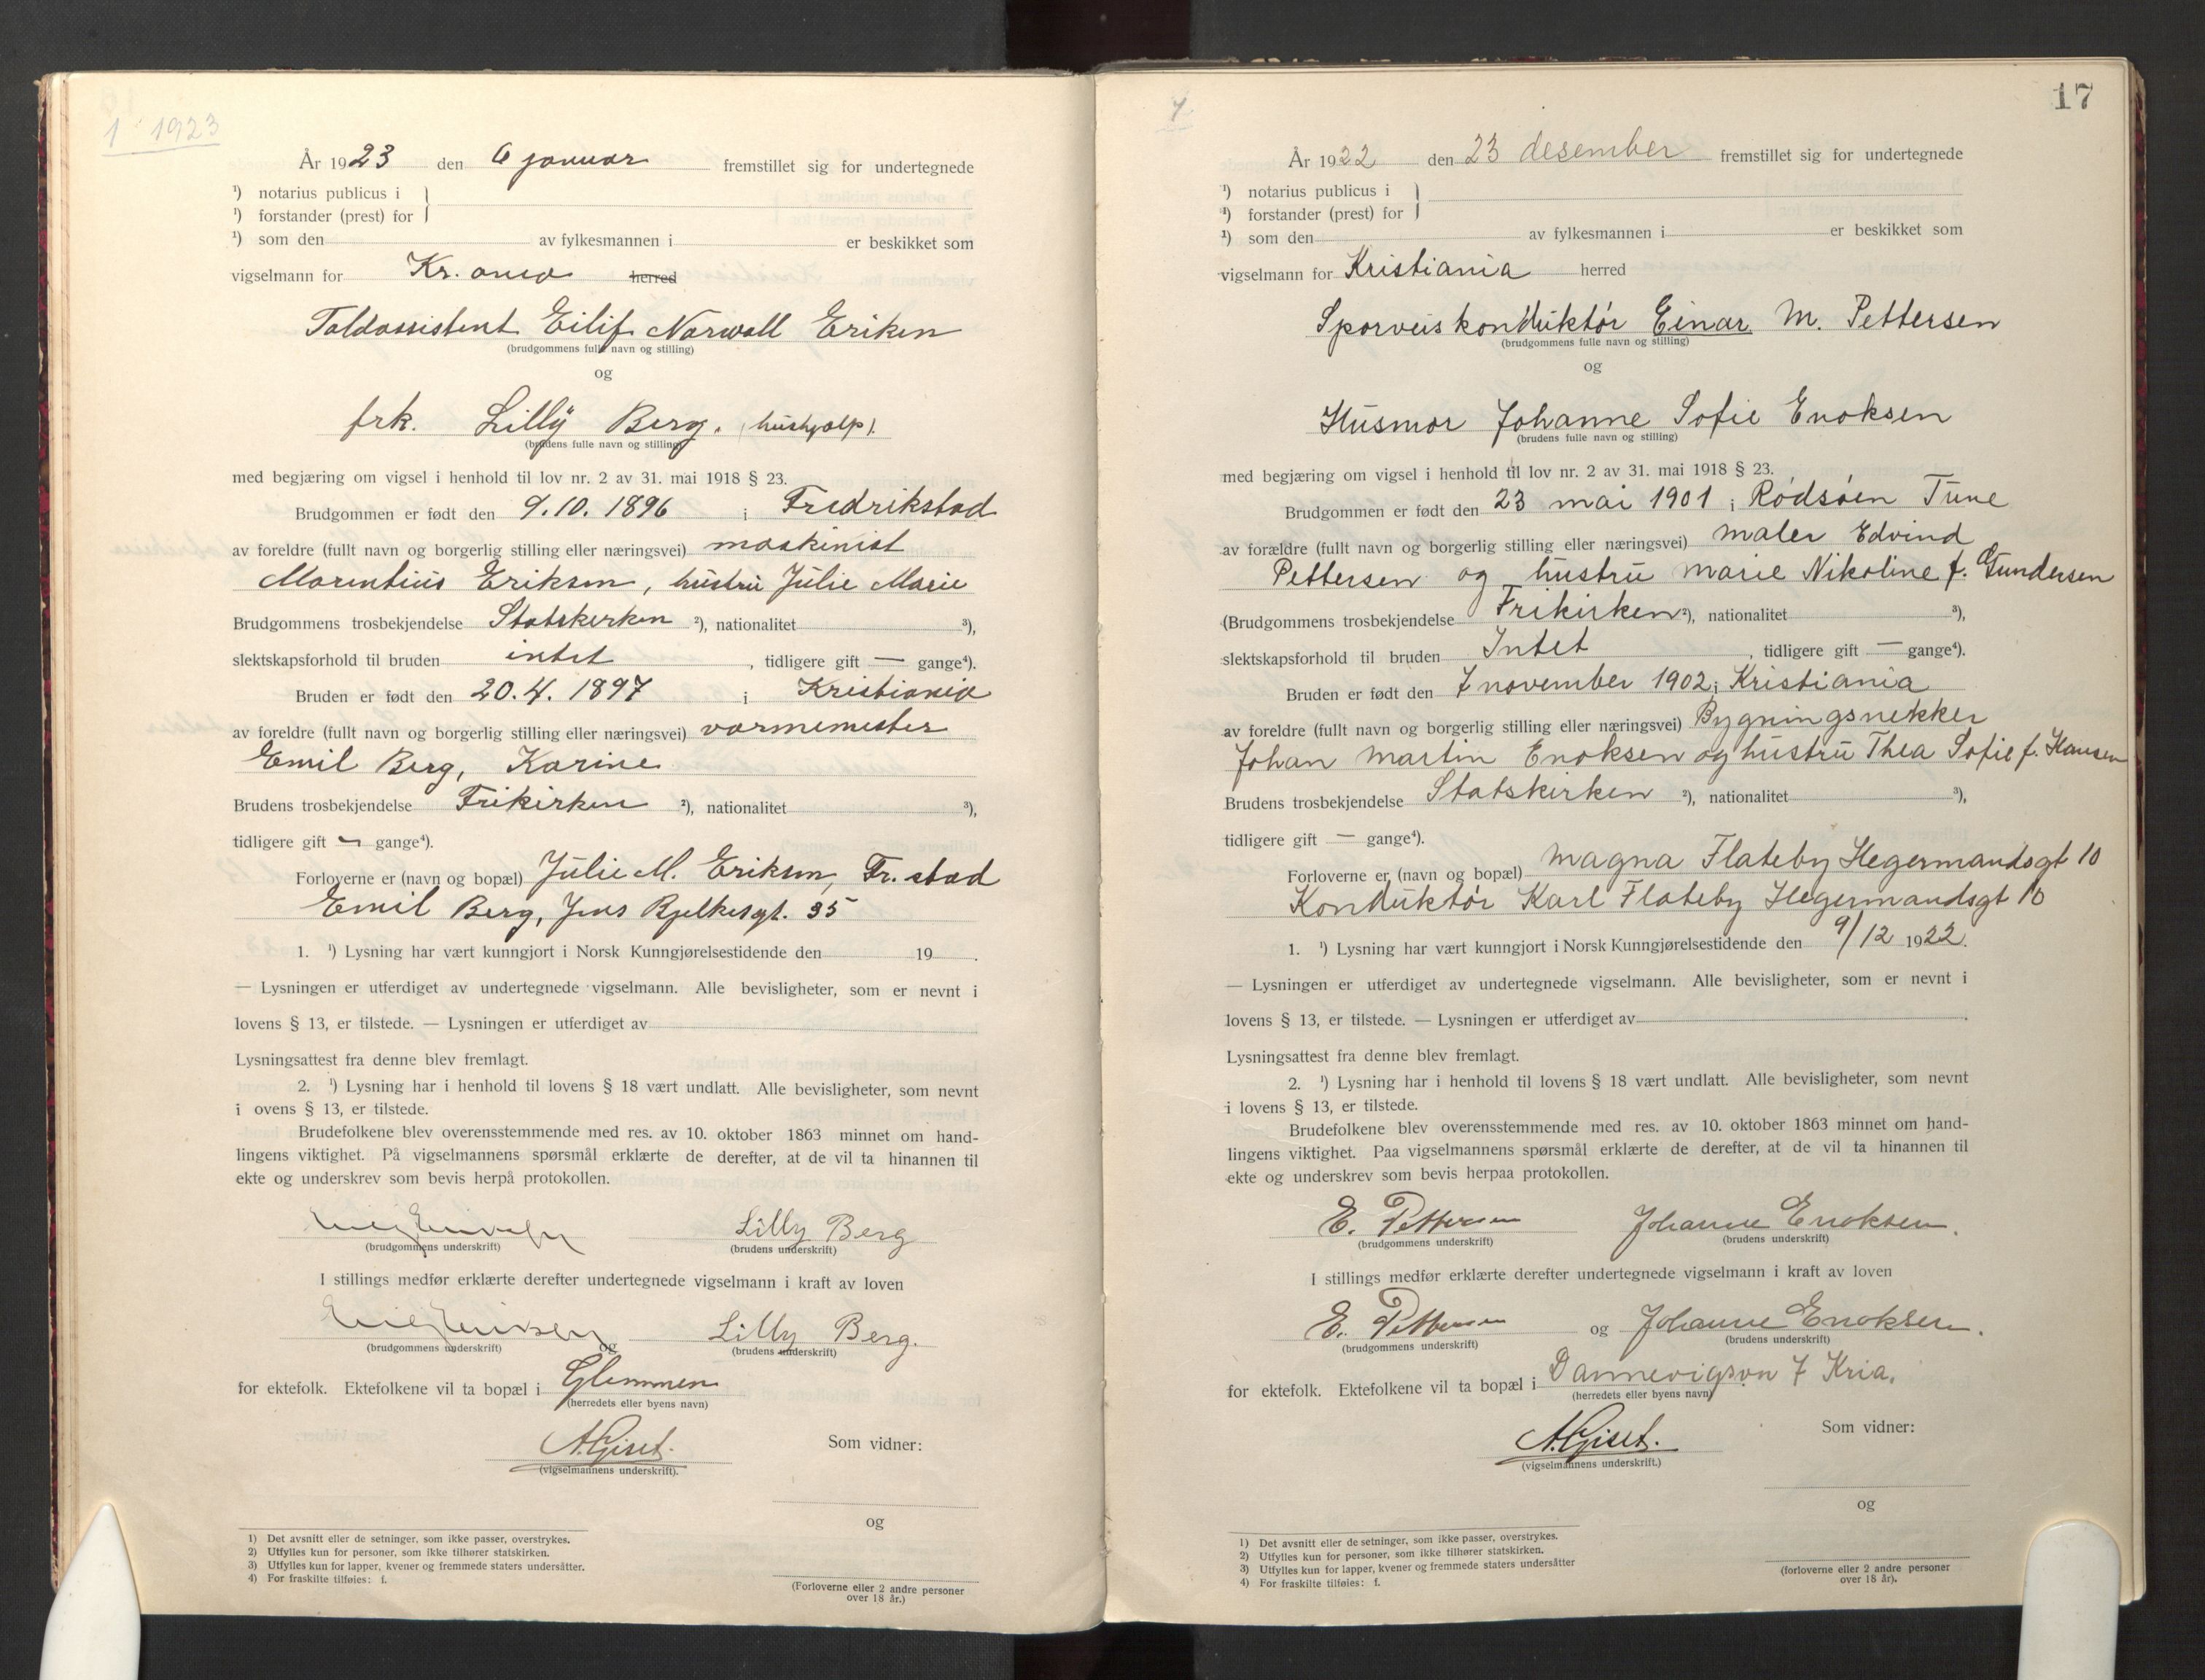 1 1923
År 1923 den 6 januar fremstillet sig for undertegnede
¹) notarius publicus i
¹) forstander (prest) for
¹) som den av fylkesmannen i er beskikket som
vigselmann for Kr.ania herred
Toldassistent Eilif Narwall Eriksen
(brudgommens fulle navn og stilling)
og
frk. Lilly Berg. (hushjælp).
(brudens fulle navn og stilling)
med begjæring om vigsel i henhold til lov nr. 2 av 31. mai 1918 § 23.
Brudgommen er født den 9.10.1896 i Fredrikstad
av foreldre (fullt navn og borgerlig stilling eller næringsvei) maskinist
Marentius Eriksen, hustru Julie Marie
Brudgommens trosbekjendelse Statskerken ²), nationalitet ³),
slektskapsforhold til bruden intet, tidligere gift — gange⁴).
Bruden er født den 20.4.1897 i Kristiania
av foreldre (fullt navn og borgerlig stilling eller næringsvei) varmemester
Emil Berg, Karine
Brudens trosbekjendelse Frikirken ²), nationalitet ³),
tidligere gift — gange⁴).
Forloverne er (navn og bopæl) Julie M. Eriksen, Fr.stad
Emil Berg, Jens Bjelkesgt. 35
1. ¹) Lysning har vært kunngjort i Norsk Kunngjørelsestidende den 19 .
— Lysningen er utferdiget av undertegnede vigselmann. Alle bevisligheter, som er nevnt i
lovens § 13, er tilstede. — Lysningen er utferdiget av
Lysningsattest fra denne blev fremlagt.
2. ¹) Lysning har i henhold til lovens § 18 vært undlatt. Alle bevisligheter, som nevnt
i ovens § 13, er tilstede.
Brudefolkene blev overensstemmende med res. av 10. oktober 1863 minnet om hand-
lingens viktighet. På vigselmannens spørsmål erklærte de derefter, at de vil ta hinannen til
ekte og underskrev som bevis herpå protokollen.
Lilly Berg
(brudgommens underskrift) (brudens underskrift)
I stillings medfør erklærte derefter undertegnede vigselmann i kraft av loven
og Lilly Berg.
(brudgommens underskrift) (brudens underskrift)
for ektefolk. Ektefolkene vil ta bopæl i Glemmen
(herredets eller byens navn)
A. Giset. Som vidner:
(vigselmannens underskrift).
og
1) Det avsnitt eller de setninger, som ikke passer, overstrykes.
2) Utfylles kun for personer, som ikke tilhører statskirken.
3) Utfylles kun for lapper, kvener og fremmede staters undersåtter.
4) For fraskilte tilføies: f.
(Forloverne eller 2 andre personer
over 18 år.)
17
År 1922 den 23 desember fremstillet sig for undertegnede
¹) notarius publicus i
¹) forstander (prest) for
¹) som den av fylkesmannen i er beskikket som
vigselmann for Kristiania herred
Sporveiskonduktør Einar M. Pettersen
(brudgommens fulle navn og stilling)
og
Husmor Johanne Sofie Enoksen
(brudens fulle navn og stilling)
med begjæring om vigsel i henhold til lov nr. 2 av 31. mai 1918 § 23.
Brudgommen er født den 23 mai 1901 i Rødsøen Tune
av forældre (fullt navn og borgerlig stilling eller næringsvei) maler Edvind
Pettersen og hustru marie Nikoline f. Gundersen
(Brudgommens trosbekjendelse Frikirken ²), nationalitet ³),
slektskapsforhold til bruden Intet, tidligere gift — gange⁴).
Bruden er født den 7 november 1902 i Kristiania
av foreldre (fullt navn og borgerlig stilling eller næringsvei) Bygningsnekker
Johan Martin Enoksen og hustru Thea Sofie f. Hansen
Brudens trosbekjendelse Statskirken ²), nationalitet ³),
tidligere gift — gange⁴).
Forloverne er (navn og bopæl) Magna Flateby Hegermandsgt 10
Konduktør Karl Flateby Hegermandsgt 10
1. ¹) Lysning har vært kunngjort i Norsk Kunngjørelsestidende den 9/12 1922.
— Lysningen er utferdiget av undertegnede vigselmann. Alle bevisligheter, som er nevnt i
lovens § 13, er tilstede. — Lysningen er utferdiget av .
Lysningsattest fra denne blev fremlagt.
2. ¹) Lysning har i henhold til lovens § 18 vært undlatt. Alle bevisligheter, som nevnt
i lovens § 13, er tilstede.
Brudefolkene blev overensstemmende med res. av 10. oktober 1863 minnet om hand-
lingens viktighet. Paa vigselmannens spørsmål erklærte de derefter, at de vil ta hinannen til
ekte og underskrev som bevis herpaa protokollen.
E. Pettersen Johanne Enoksen.
(brudgommens underskrift) (brudens underskrift)
I stillings medfør erklærte derefter undertegnede vigselmann i kraft av loven
E. Pettersen og Johanne Enoksen.
(brudgommens underskrift) (brudens underskrift)
for ektefolk. Ektefolkene vil ta bopæl i Dannevigsvn 7 Kria.
(herredets eller byens navn)
A. Giset. Som vidner:
(vigselmannens underskrift.)
og
1) Det avsnitt eller de setninger, som ikke passer, overstrykes.
2) Utfylles kun for personer, som ikke tilhører statskirken.
3) Utfylles kun for lapper, kvener og fremmede staters undersåtter
4) For fraskilte tilføies: f.
(forloverne eller 2 andre personer
over 18 år).